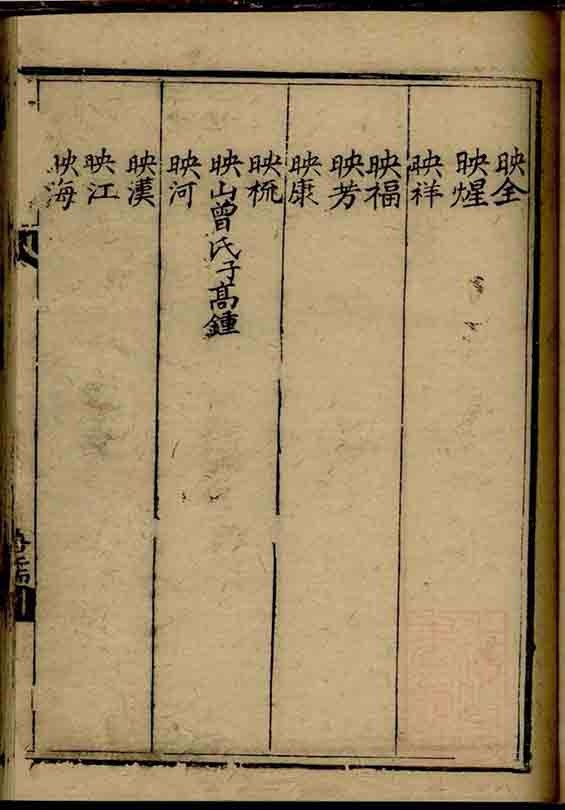 映全
映煋
映祥
映福
映芳
映康
映梳
映山曾氏子高鍾
映河
映漢
映江
映海